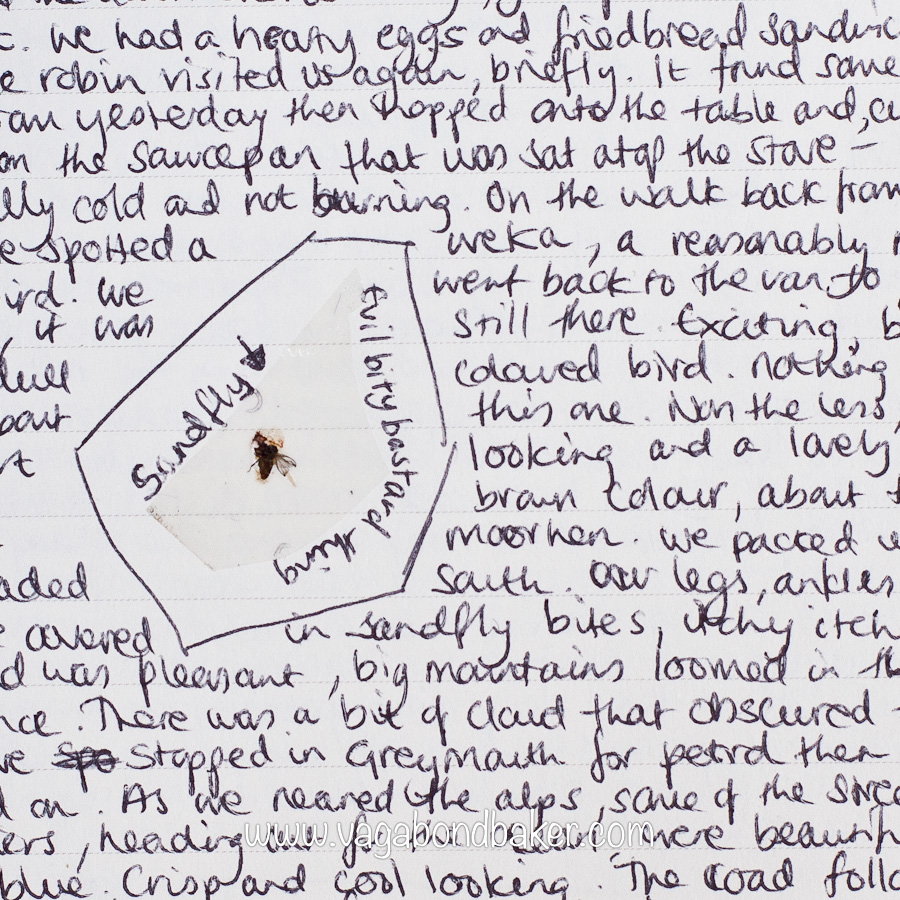 . We had a hearty eggs and friedbread sandwic
e robin visited us again, briefly. It found some
am yesterday then hopped onto the table and, cu
on the saucepan that was sat atop the stove -
lly cold and not burning. On the walk back from
e spotted a weka, a reasonably r
ird. We went back to the van to
, it was still there. Exciting, b
dull coloured bird. nothing
bout this one. Non the less,
rt looking and a lovely
brown colour, about t
moorhen. We packed u
aded south. Our legs, ankles
e covered in sandfly bites, itchy itch
d was pleasant, big mountains loomed in th
nce. There was a bit of cloud that obscured
ve spo stopped in Greymouth for petrol then
d on. As we neared the alps, some of the strea
ers, heading for the were beautifu
blue. Crisp and cool looking. The road follo
Sandfly
Evil bity bastard thing
www.vagabondbaker.com